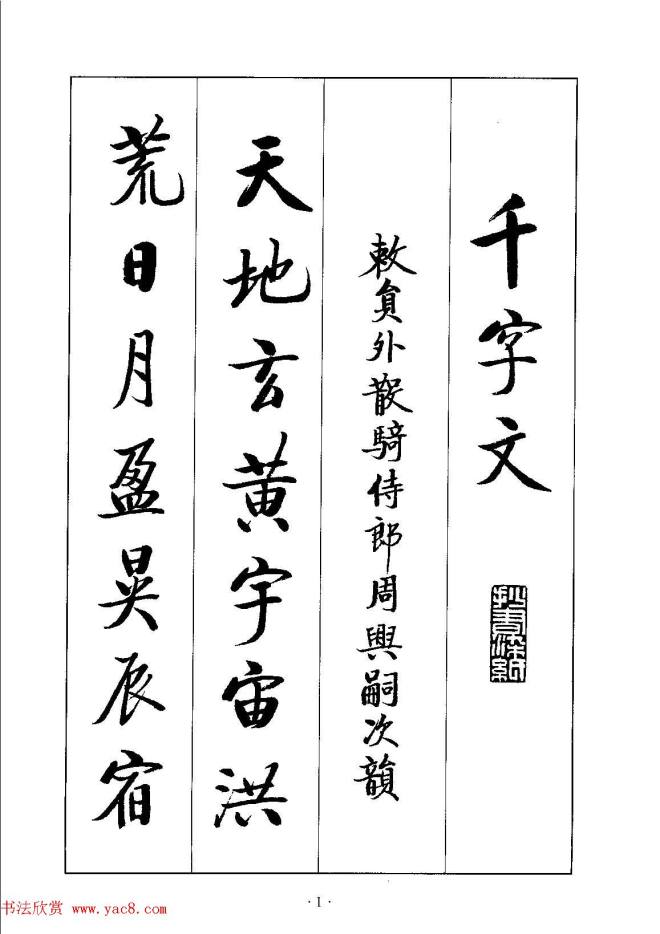 千字文
敕員外散騎侍郎周興嗣次韻
天地玄黄宇宙洪
荒日月盈昃辰宿
·1·
书法欣赏 www.yac8.com